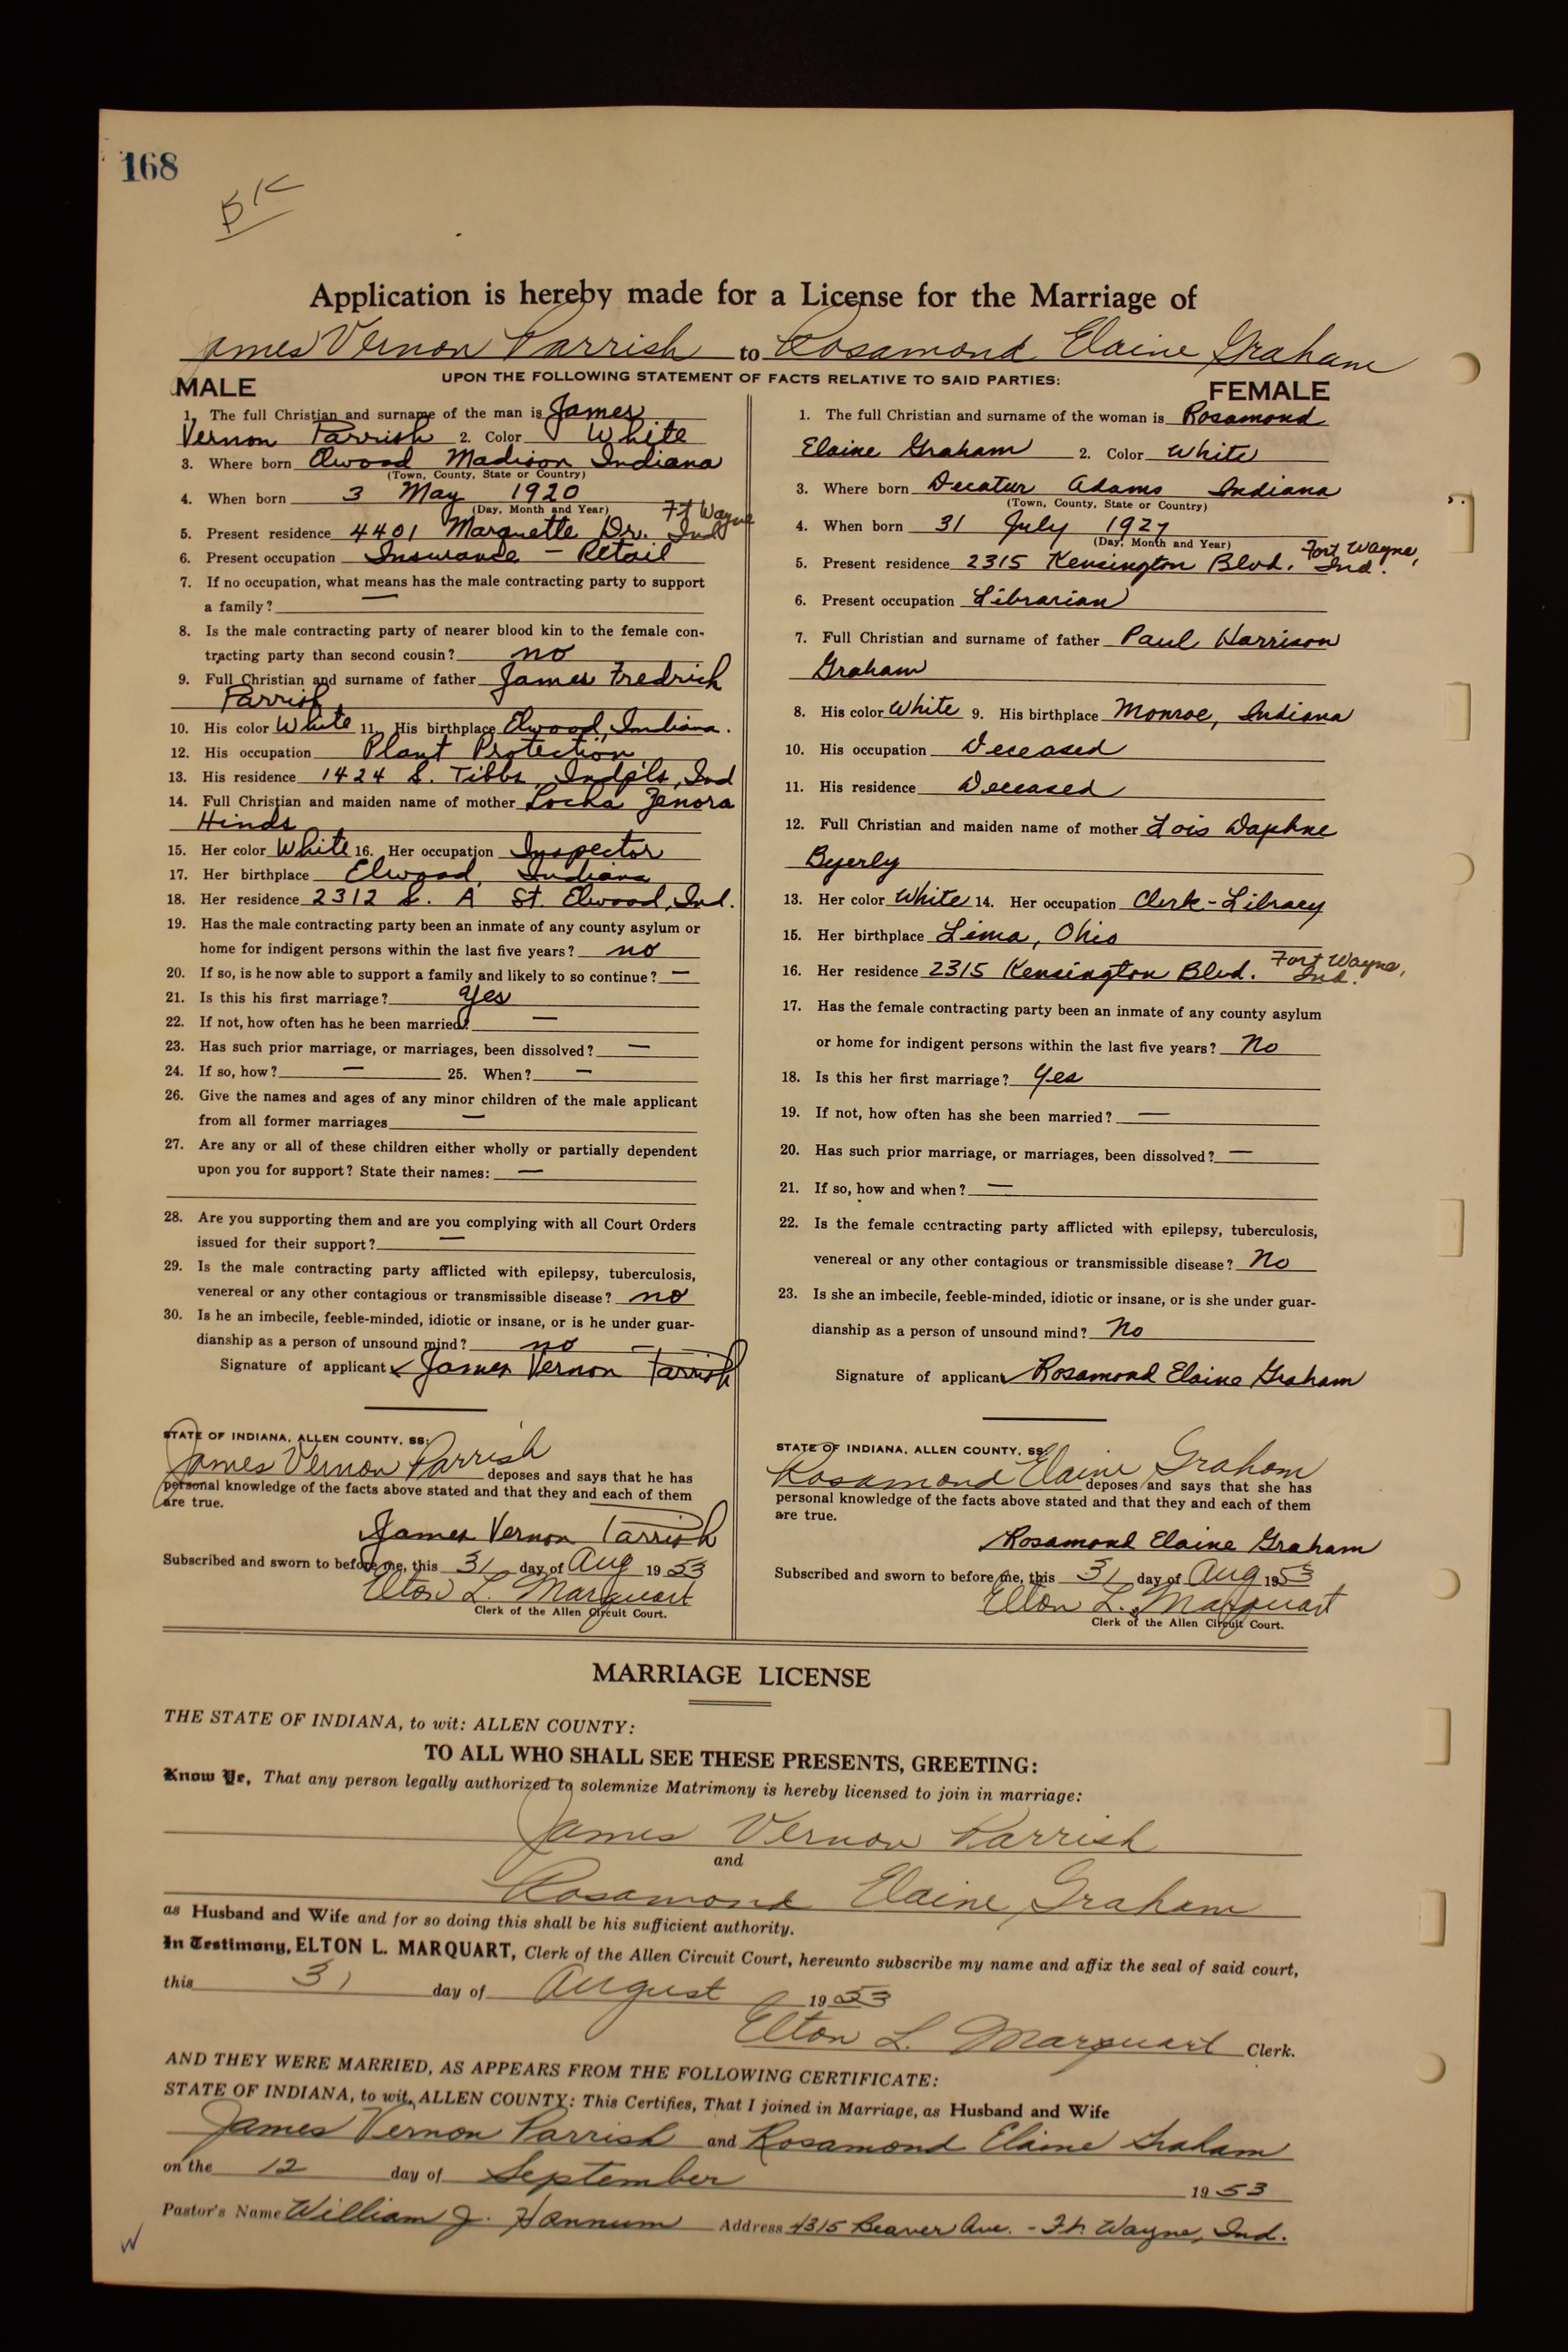 168
BK
Application is hereby made for a License for the Marriage of
James Vernon Parrish to Rosamond Elaine Graham
UPON THE FOLLOWING STATEMENT OF FACTS RELATIVE TO SAID PARTIES:
MALE
1. The full Christian and surname of the man is James
Vernon Parrish 2. Color White
3. Where born Elwood Madison Indiana
(Town, County, State or Country)
4. When born 3 May 1920
(Day, Month and Year)
5. Present residence 4401 Marquette Dr. Ft Wayne Ind
6. Present occupation Insurance - Retail
7. If no occupation, what means has the male contracting party to support
a family? —
8. Is the male contracting party of nearer blood kin to the female con-
tracting party than second cousin? no
9. Full Christian and surname of father James Fredrich
Parrish
10. His color White 11. His birthplace Elwood, Indiana.
12. His occupation Plant Protection
13. His residence 1424 S. Tibbs, Indpls, Ind
14. Full Christian and maiden name of mother Locha Zenora
Hinds
15. Her color White 16. Her occupation Inspector
17. Her birthplace Elwood, Indiana
18. Her residence 2312 S. A St. Elwood, Ind.
19. Has the male contracting party been an inmate of any county asylum or
home for indigent persons within the last five years? no
20. If so, is he now able to support a family and likely to so continue? —
21. Is this his first marriage? yes
22. If not, how often has he been married? —
23. Has such prior marriage, or marriages, been dissolved? —
24. If so, how? — 25. When? —
26. Give the names and ages of any minor children of the male applicant
from all former marriages —
27. Are any or all of these children either wholly or partially dependent
upon you for support? State their names: —
28. Are you supporting them and are you complying with all Court Orders
issued for their support? —
29. Is the male contracting party afflicted with epilepsy, tuberculosis,
venereal or any other contagious or transmissible disease? no
30. Is he an imbecile, feeble-minded, idiotic or insane, or is he under guar-
dianship as a person of unsound mind? no —
Signature of applicant James Vernon Parrish
STATE OF INDIANA, ALLEN COUNTY, SS:
James Vernon Parrish deposes and says that he has
personal knowledge of the facts above stated and that they and each of them
are true.
James Vernon Parrish
Subscribed and sworn to before me, this 31 day of Aug 1953
Elton L. Marquart
Clerk of the Allen Circuit Court.
FEMALE
1. The full Christian and surname of the woman is Rosamond
Elaine Graham 2. Color White
3. Where born Decatur Adams Indiana
(Town, County, State or Country)
4. When born 31 July 1927
(Day, Month and Year)
5. Present residence 2315 Kensington Blvd. Fort Wayne, Ind.
6. Present occupation Librarian
7. Full Christian and surname of father Paul Harrison
Graham
8. His color White 9. His birthplace Monroe, Indiana
10. His occupation Deceased
11. His residence Deceased
12. Full Christian and maiden name of mother Lois Daphne
Byerly
13. Her color White 14. Her occupation Clerk - Library
15. Her birthplace Lima, Ohio
16. Her residence 2315 Kensington Blvd. Fort Wayne, Ind.
17. Has the female contracting party been an inmate of any county asylum
or home for indigent persons within the last five years? No
18. Is this her first marriage? Yes
19. If not, how often has she been married? —
20. Has such prior marriage, or marriages, been dissolved? —
21. If so, how and when? —
22. Is the female contracting party afflicted with epilepsy, tuberculosis,
venereal or any other contagious or transmissible disease? No
23. Is she an imbecile, feeble-minded, idiotic or insane, or is she under guar-
dianship as a person of unsound mind? No
Signature of applicant Rosamond Elaine Graham
STATE OF INDIANA, ALLEN COUNTY, SS:
Rosamond Elaine Graham deposes and says that she has
personal knowledge of the facts above stated and that they and each of them
are true.
Rosamond Elaine Graham
Subscribed and sworn to before me, this 31 day of Aug 1953
Elton L. Marquart
Clerk of the Allen Circuit Court.
MARRIAGE LICENSE
THE STATE OF INDIANA, to wit: ALLEN COUNTY:
TO ALL WHO SHALL SEE THESE PRESENTS, GREETING:
Know Ye, That any person legally authorized to solemnize Matrimony is hereby licensed to join in marriage:
James Vernon Parrish
and
Rosamond Elaine Graham
as Husband and Wife and for so doing this shall be his sufficient authority.
In Testimony, ELTON L. MARQUART, Clerk of the Allen Circuit Court, hereunto subscribe my name and affix the seal of said court,
this 31 day of August 1953
Elton L. Marquart Clerk.
AND THEY WERE MARRIED, AS APPEARS FROM THE FOLLOWING CERTIFICATE:
STATE OF INDIANA, to wit, ALLEN COUNTY: This Certifies, That I joined in Marriage, as Husband and Wife
James Vernon Parrish and Rosamond Elaine Graham
on the 12 day of September 1953
Pastor's Name William J. Hannum Address 4315 Beaver Ave. - Ft. Wayne, Ind.